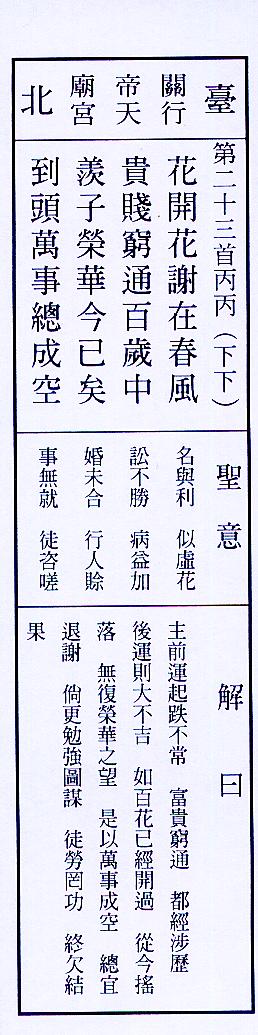 臺
關行
帝天
廟宮
北
第二十三首丙丙(下下)
花開花謝在春風
貴賤窮通百歲中
羨子榮華今已矣
到頭萬事總成空
聖意
名與利 似虛花
訟不勝 病益加
婚未合 行人賒
事無就 徒咨嗟
解曰
主前運起跌不常 富貴窮通 都經涉歷
後運則大不吉 如百花已經開過 從今搖
落 無復榮華之望 是以萬事成空 總宜
退謝 倘更勉強圖謀 徒勞罔功 終欠結
果